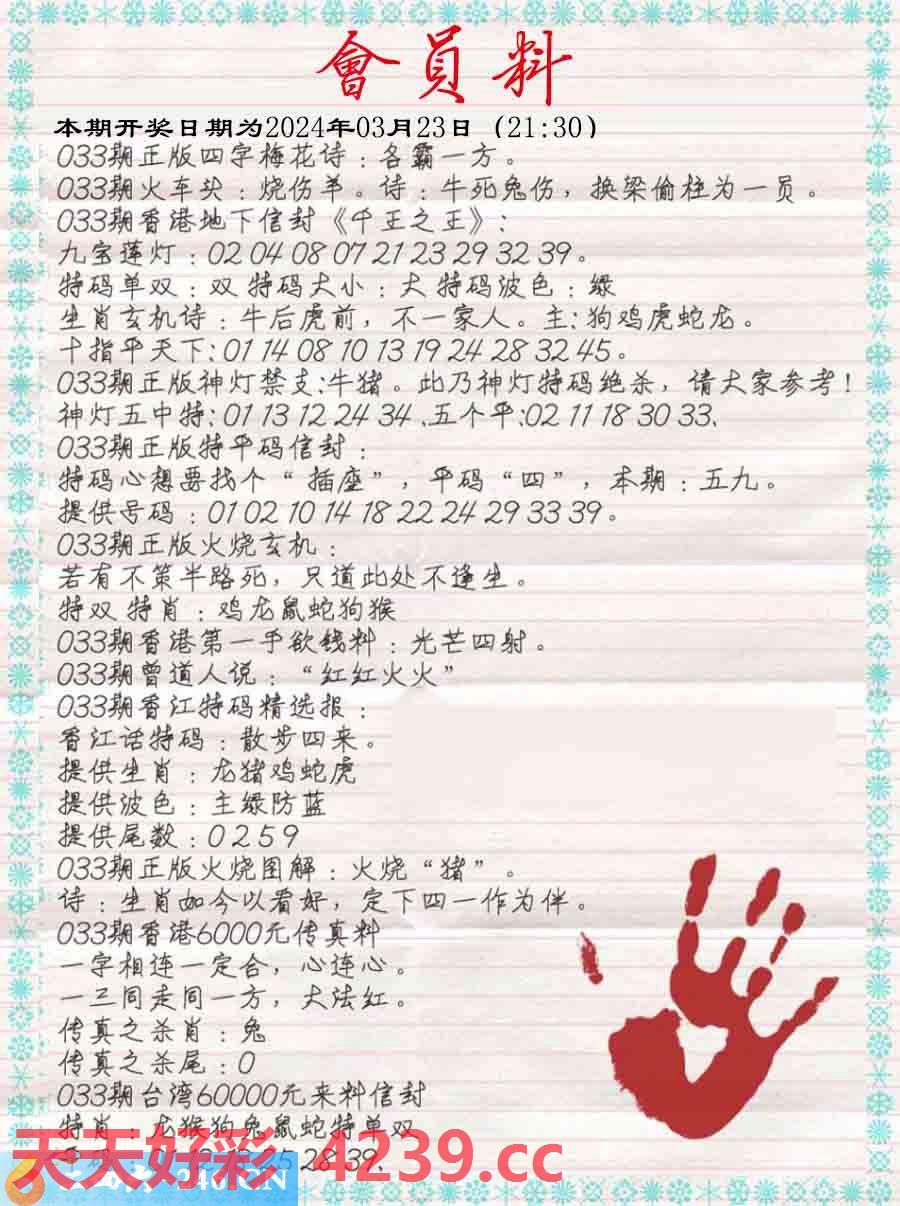 會員料
本期开奖日期为2024年03月23日（21:30）
033期正版四字梅花诗：各霸一方。
033期火车头：烧伤羊。诗：牛死兔伤，换梁偷柱为一员。
033期香港地下信封《千王之王》：
九宝莲灯：02 04 08 07 21 23 29 32 39。
特码单双：双 特码大小：大 特码波色：绿
生肖玄机诗：牛后虎前，不一家人。主：狗鸡虎蛇龙。
十指平天下：01 14 08 10 13 19 24 28 32 45。
033期正版神灯禁支：牛猪。此乃神灯特码绝杀，请大家参考！
神灯五中特：01 13 12 24 34 .五个平：02 11 18 30 33.
033期正版特平码信封：
特码心想要找个“插座”，平码“四”，本期：五九。
提供号码：01 02 10 14 18 22 24 29 33 39。
033期正版火烧玄机：
若有不策半路死，只道此处不逢生。
特双 特肖：鸡龙鼠蛇狗猴
033期香港第一手欲钱料：光芒四射。
033期曾道人说：“红红火火”
033期香江特码精选报：
香江话特码：散步四来。
提供生肖：龙猪鸡蛇虎
提供波色：主绿防蓝
提供尾数：0 2 5 9
033期正版火烧图解：火烧“猪”。
诗：生肖如今以看好，定下四一作为伴。
033期香港6000元传真料
一字相连一定合，心连心。
一三同走同一方，大法红。
传真之杀肖：兔
传真之杀尾：0
033期台湾60000元来料信封
特肖：龙猴狗兔鼠蛇特单双
天天好彩 4239.cc